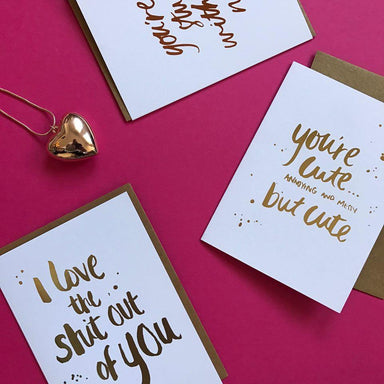 you're
you're
cute...
ANNOYING AND MESSY
but cute
I love
the
shit out
of YOU